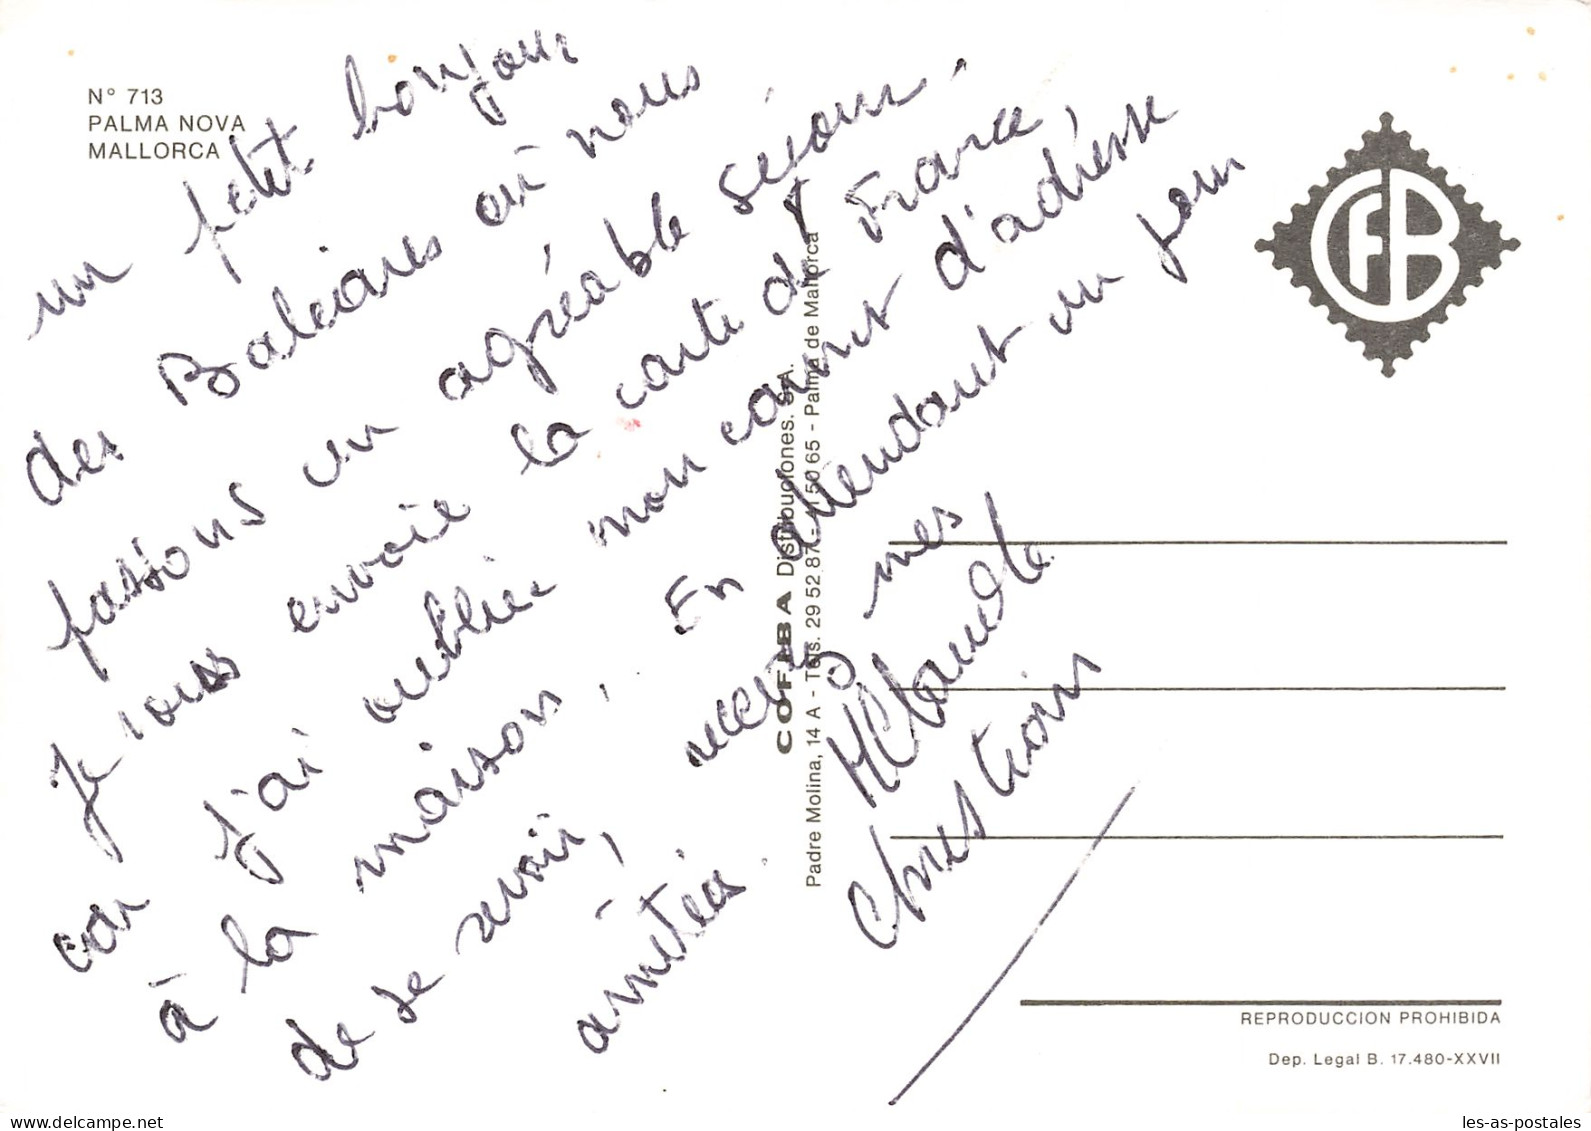 N° 713
PALMA NOVA
MALLORCA
un petit bonjour
des Baléares où nous
passons un agréable séjour.
Je vous envoie la carte de France,
car j'ai oublié mon carnet d'adresse
à la maison. En attendant un jour
de se revoir, recevez mes
amitiés.
Christian
COFIBA Distribuciones. S.A.
Padre Molina, 14 A - Tels. 29 52 87 - 4 50 65 - Palma de Mallorca
CFB
REPRODUCCION PROHIBIDA
Dep. Legal B. 17.480-XXVII
les-as-postales